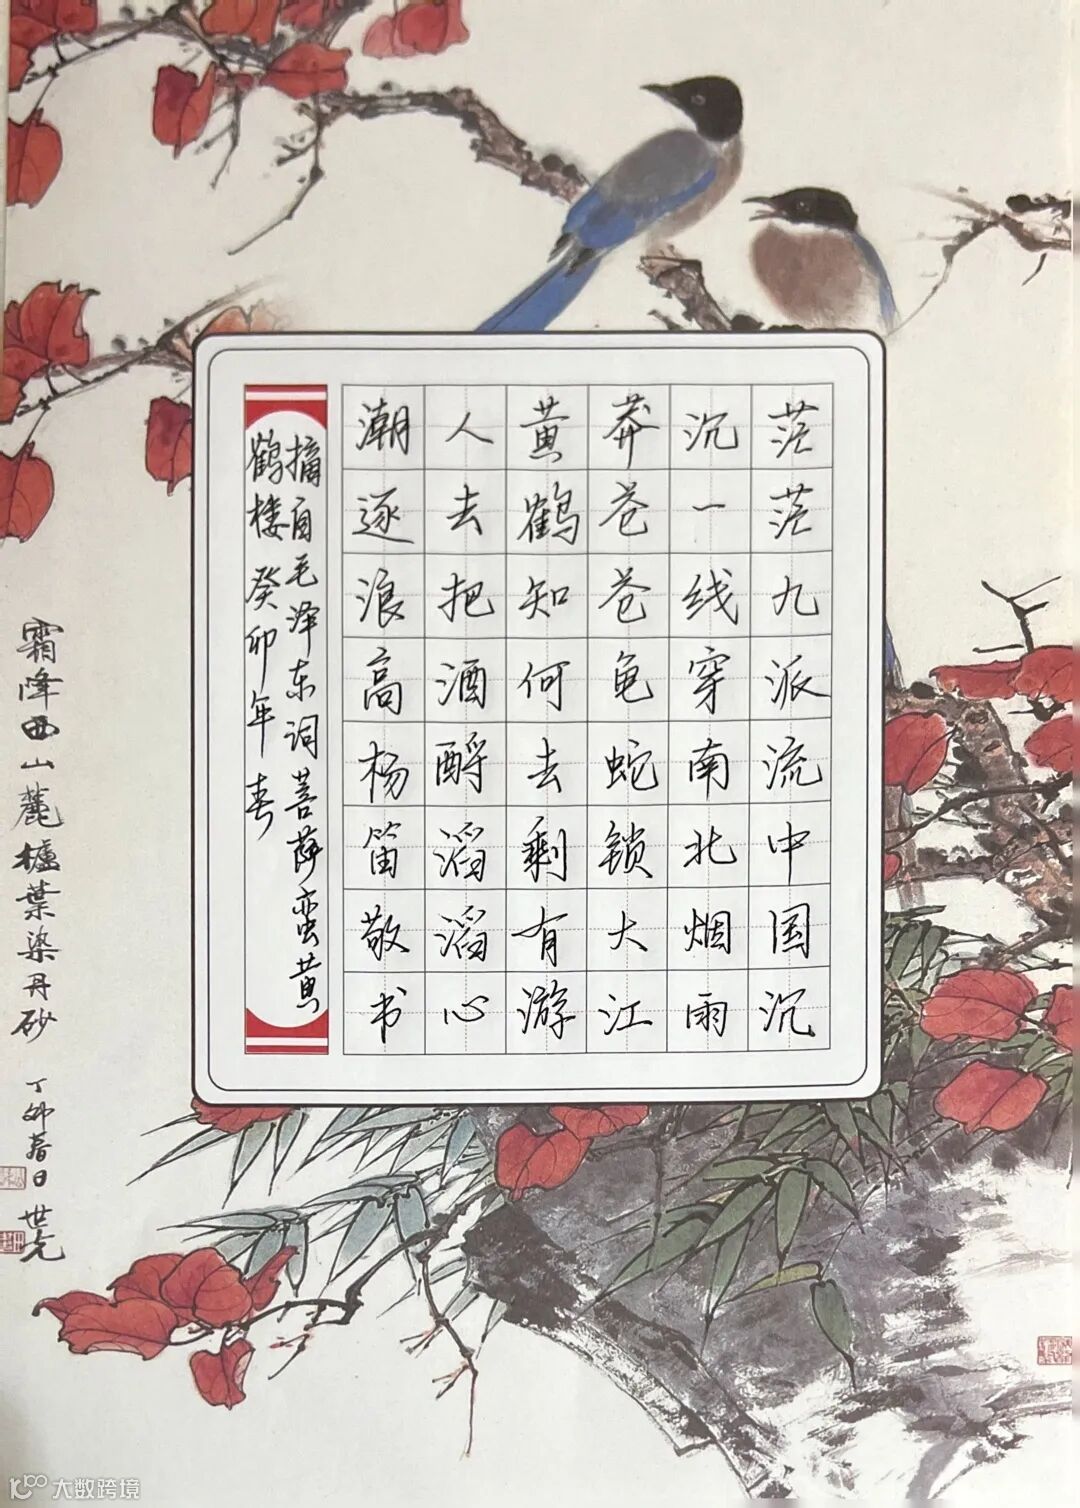 茫茫九派流中国沉
沉一线穿南北烟雨
莽苍苍龟蛇锁大江
黄鹤知何去剩有游
人去把酒酹滔滔心
潮逐浪高杨笛敬书
摘自毛泽东词菩萨蛮黄
鹤楼 癸卯年春
霜降西山麓櫨葉染丹砂 丁卯春日 世光
大数跨境